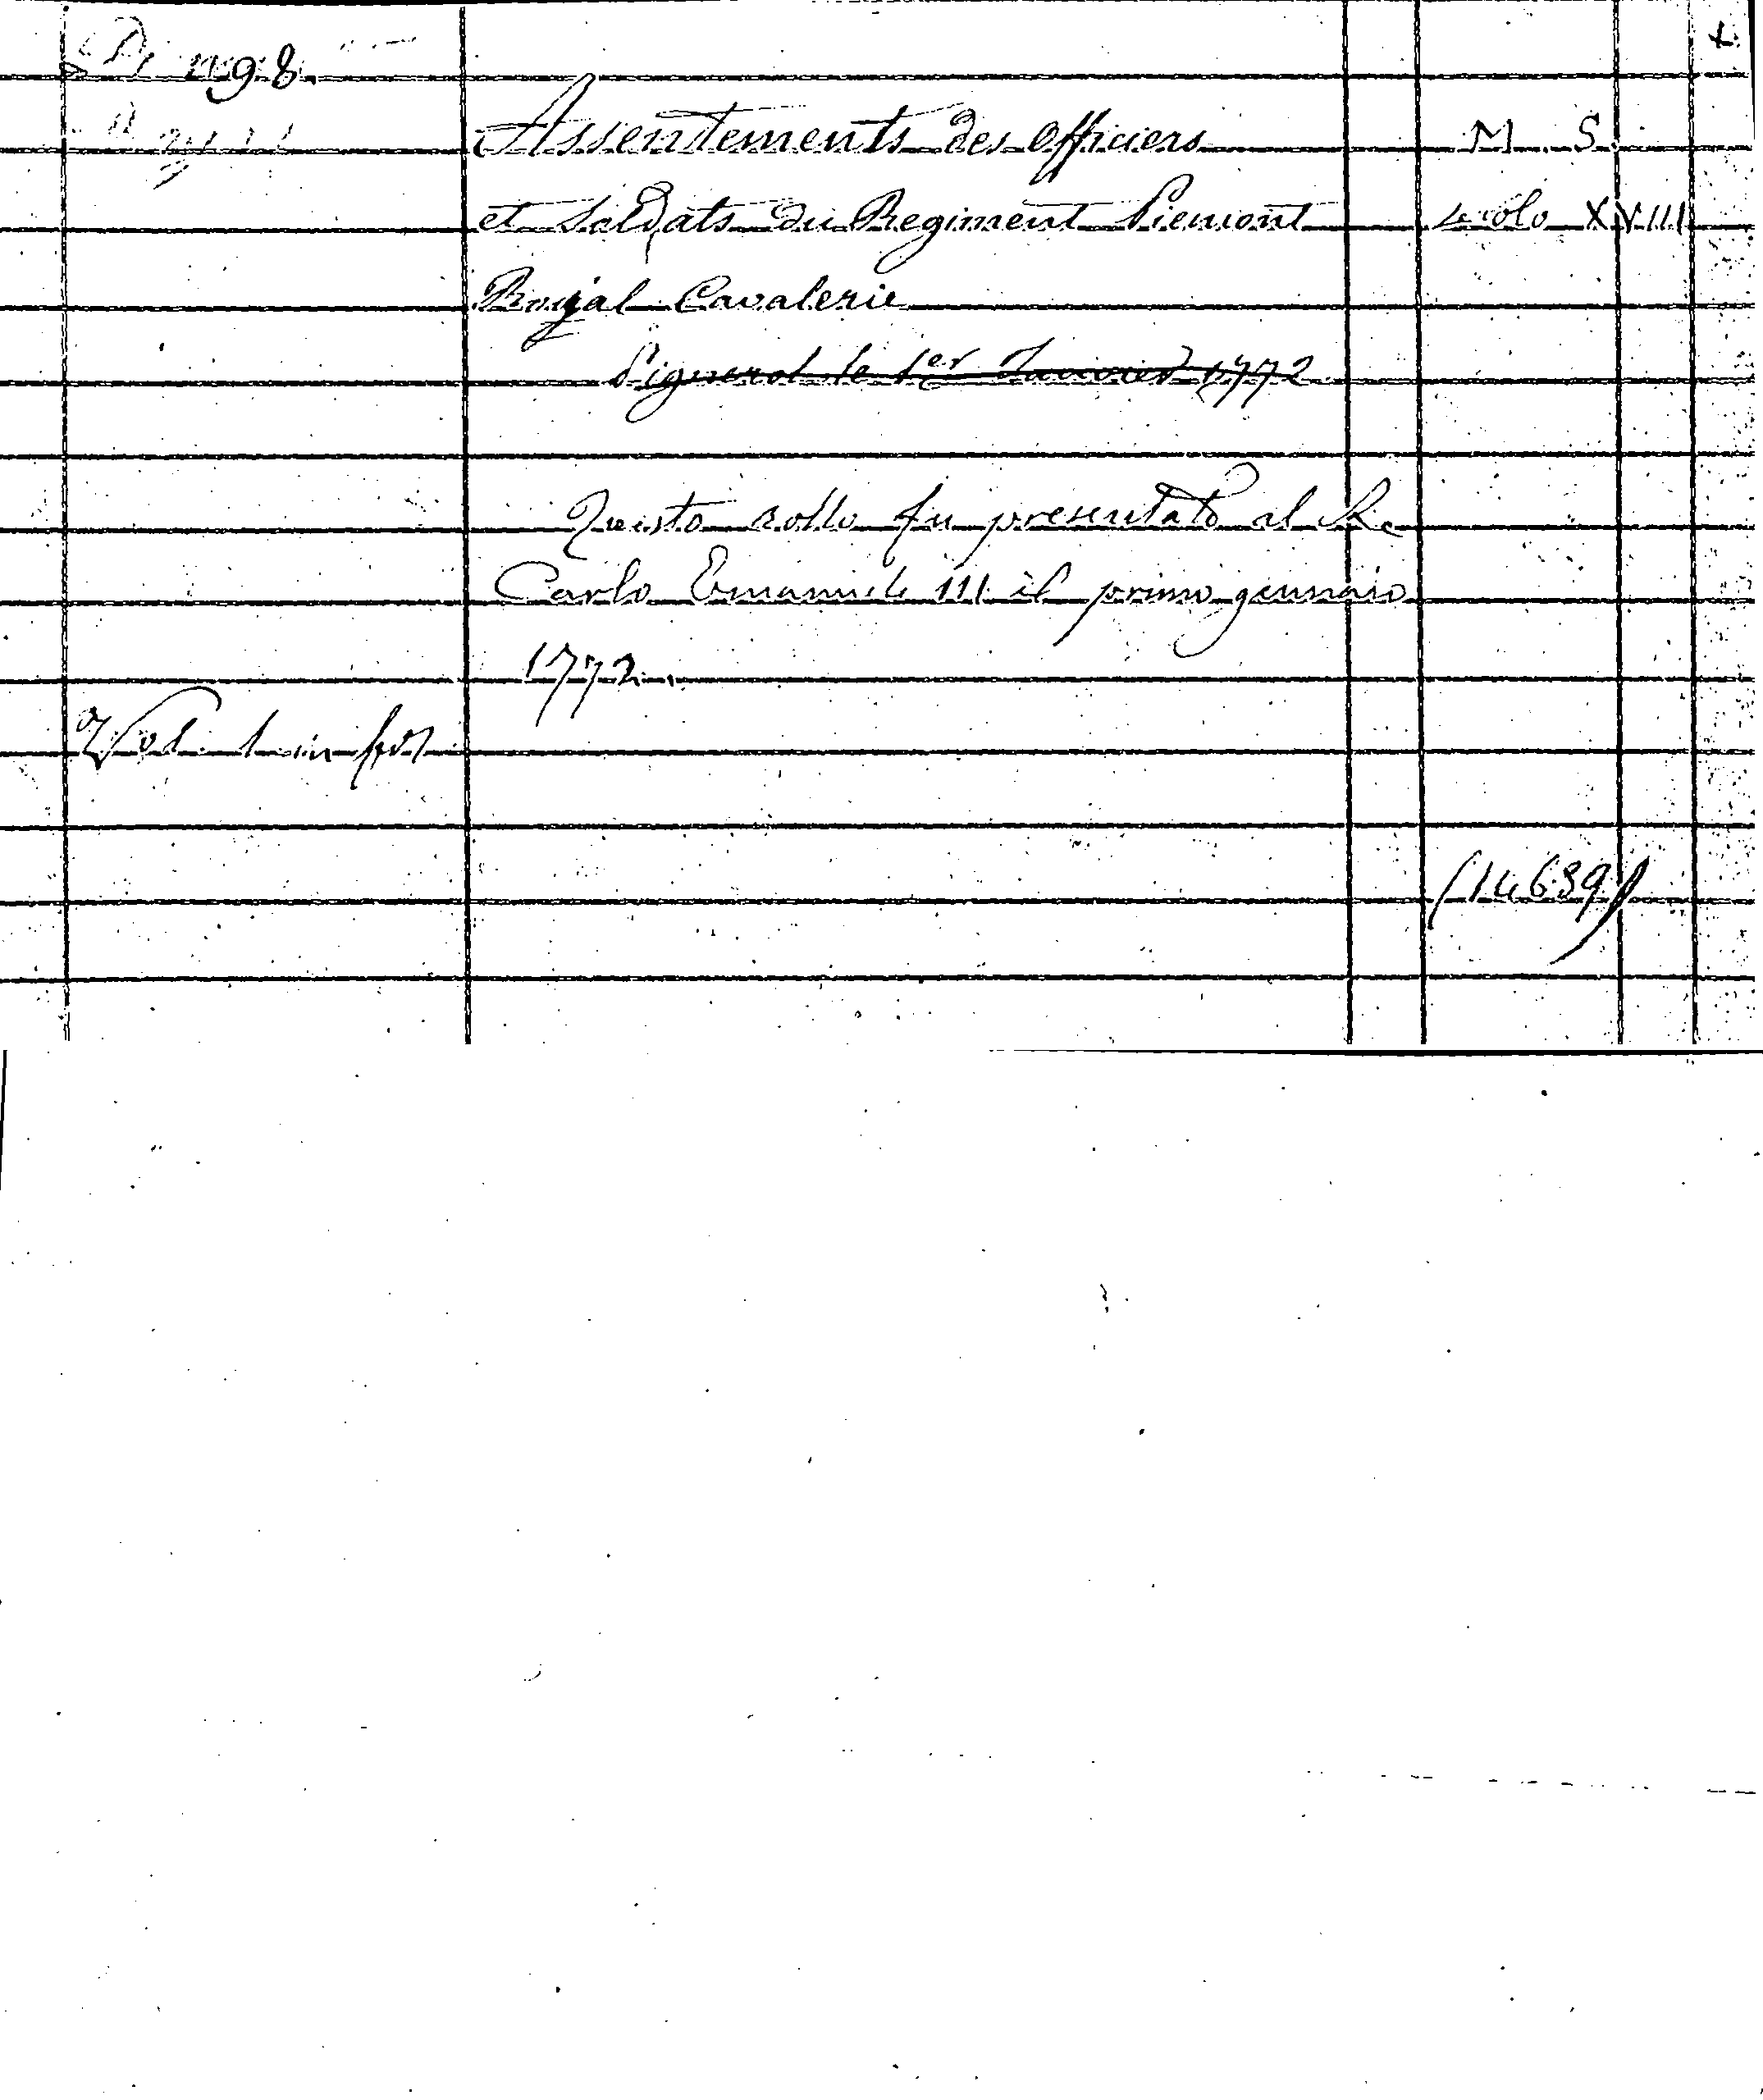 198.
Assentements des Officiers
M. S.
et Soldats du Regiment Piemont
secolo XVIII
Royal Cavalerie
Pignerol le 1er Janvier 1772
Questo rollo fu presentato al Re
Carlo Emanuele III il primo gennaio
1772.
Vol. 1 in fol
(14639)